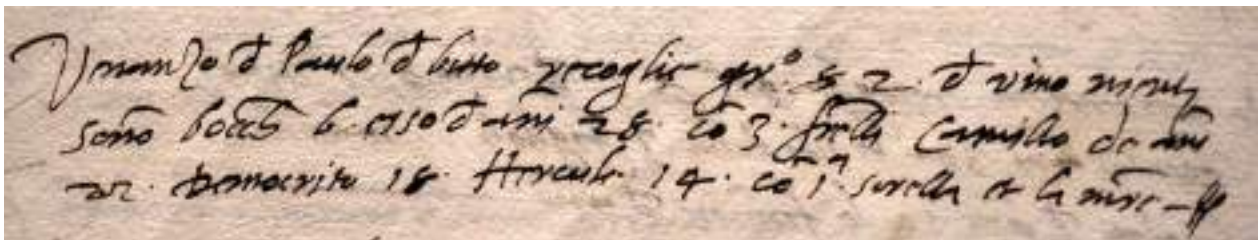 Venanzo d Paulo d betto recoglie gr° s 2 d vino
sono bocch 6 esso d añi 28 cõ 3 frelli Camillo de añi
22 Democrito 18 Hercule 14 cõ 1ª sorella et la mre